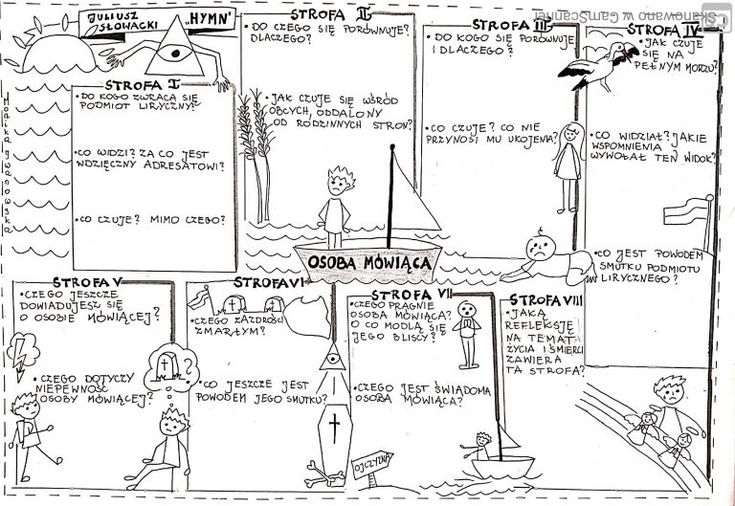 JULIUSZ
SŁOWACKI
„HYMN"
Skanowano w CamScanner
STROFA I
• DO KOGO ZWRACA SIĘ
PODMIOT LIRYCZNY?
• CO WIDZI? ZA CO JEST
WDZIĘCZNY ADRESATOWI?
• CO CZUJE? MIMO CZEGO?
STROFA II
• DO CZEGO SIĘ PORÓWNUJE?
DLACZEGO?
• JAK CZUJE SIĘ WŚRÓD
OBCYCH, ODDALONY
OD RODZINNYCH STRON?
STROFA III
• DO KOGO SIĘ PORÓWNUJE
I DLACZEGO?
• CO CZUJE? CO NIE
PRZYNOSI MU UKOJENIA?
STROFA IV
• JAK CZUJE
SIĘ NA
PEŁNYM MORZU?
• CO WIDZIAŁ? JAKIE
WSPOMNIENIA
WYWOŁAŁ TEN WIDOK?
• CO JEST POWODEM
SMUTKU PODMIOTU
LIRYCZNEGO?
OSOBA MÓWIĄCA
STROFA V
• CZEGO JESZCZE
DOWIADUJESZ SIĘ
O OSOBIE MÓWIĄCEJ?
• CZEGO DOTYCZY
NIEPEWNOŚĆ
OSOBY MÓWIĄCEJ?
?
STROFA VI
• CZEGO ZAZDROŚCI
ZMARŁYM?
• CO JESZCZE JEST
POWODEM JEGO SMUTKU?
STROFA VII
• CZEGO PRAGNIE
OSOBA MÓWIĄCA?
O CO MODLĄ SIĘ
JEGO BLISCY?
• CZEGO JEST ŚWIADOMA
OSOBA MÓWIĄCA?
OJCZYZNA
STROFA VIII
• JAKĄ
REFLEKSJĘ
NA TEMAT
ŻYCIA I ŚMIERCI
ZAWIERA
TA STROFA?
Monika Iwanowska